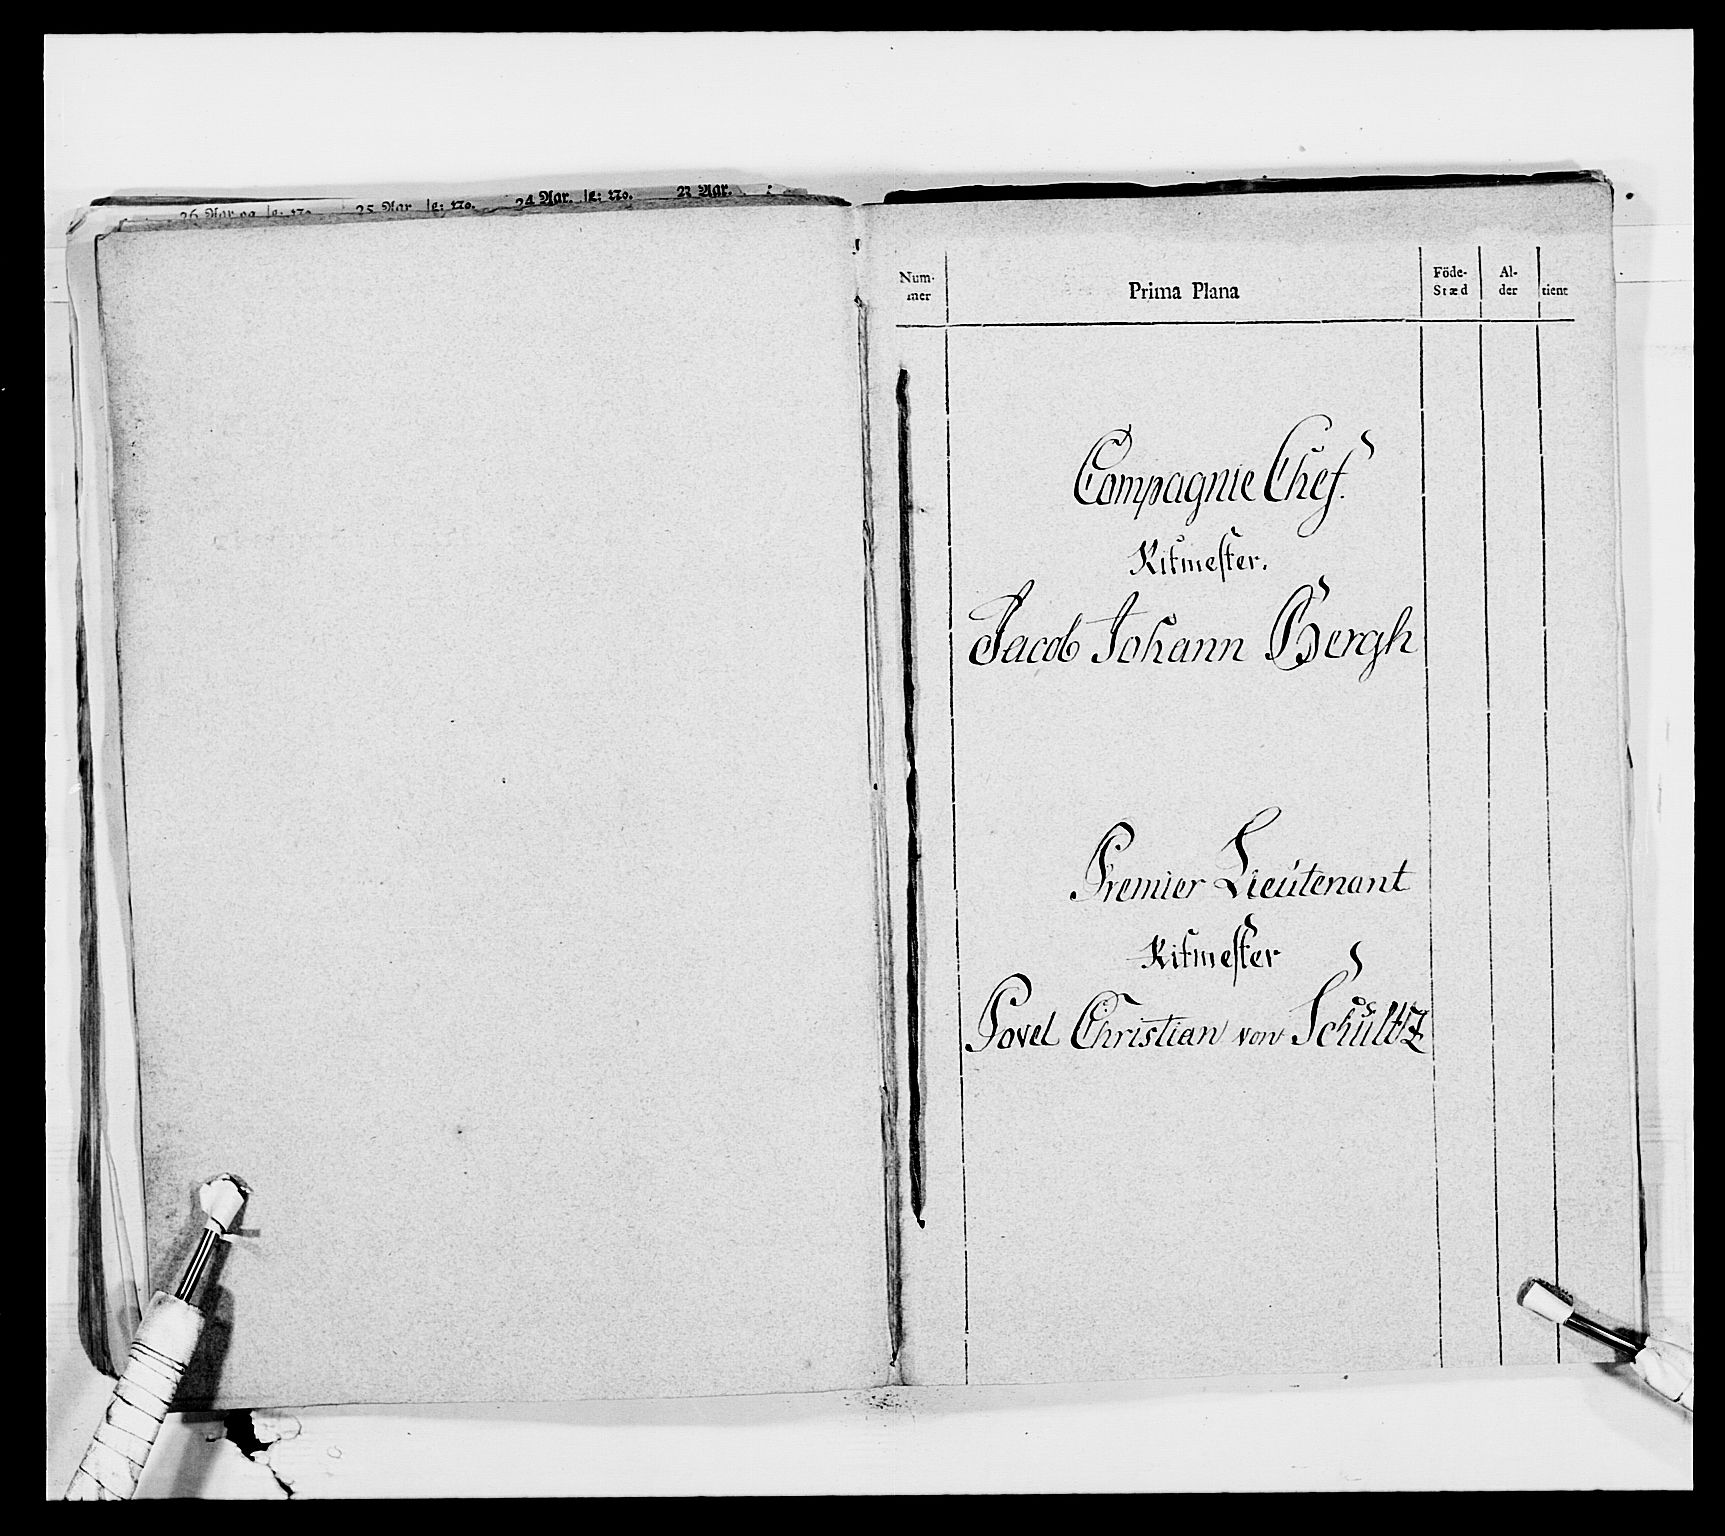 26 Aar og
25 Aar
24 Aar.
23 Aar.
Num-
mer
Prima Plana
Föde-
Stæd
Al-
der
tient
Compagnie Chef.
Ritmester.
Jacob Johann Bergh
Premier Lieutenant
Ritmester
Povel Christian von Schultz